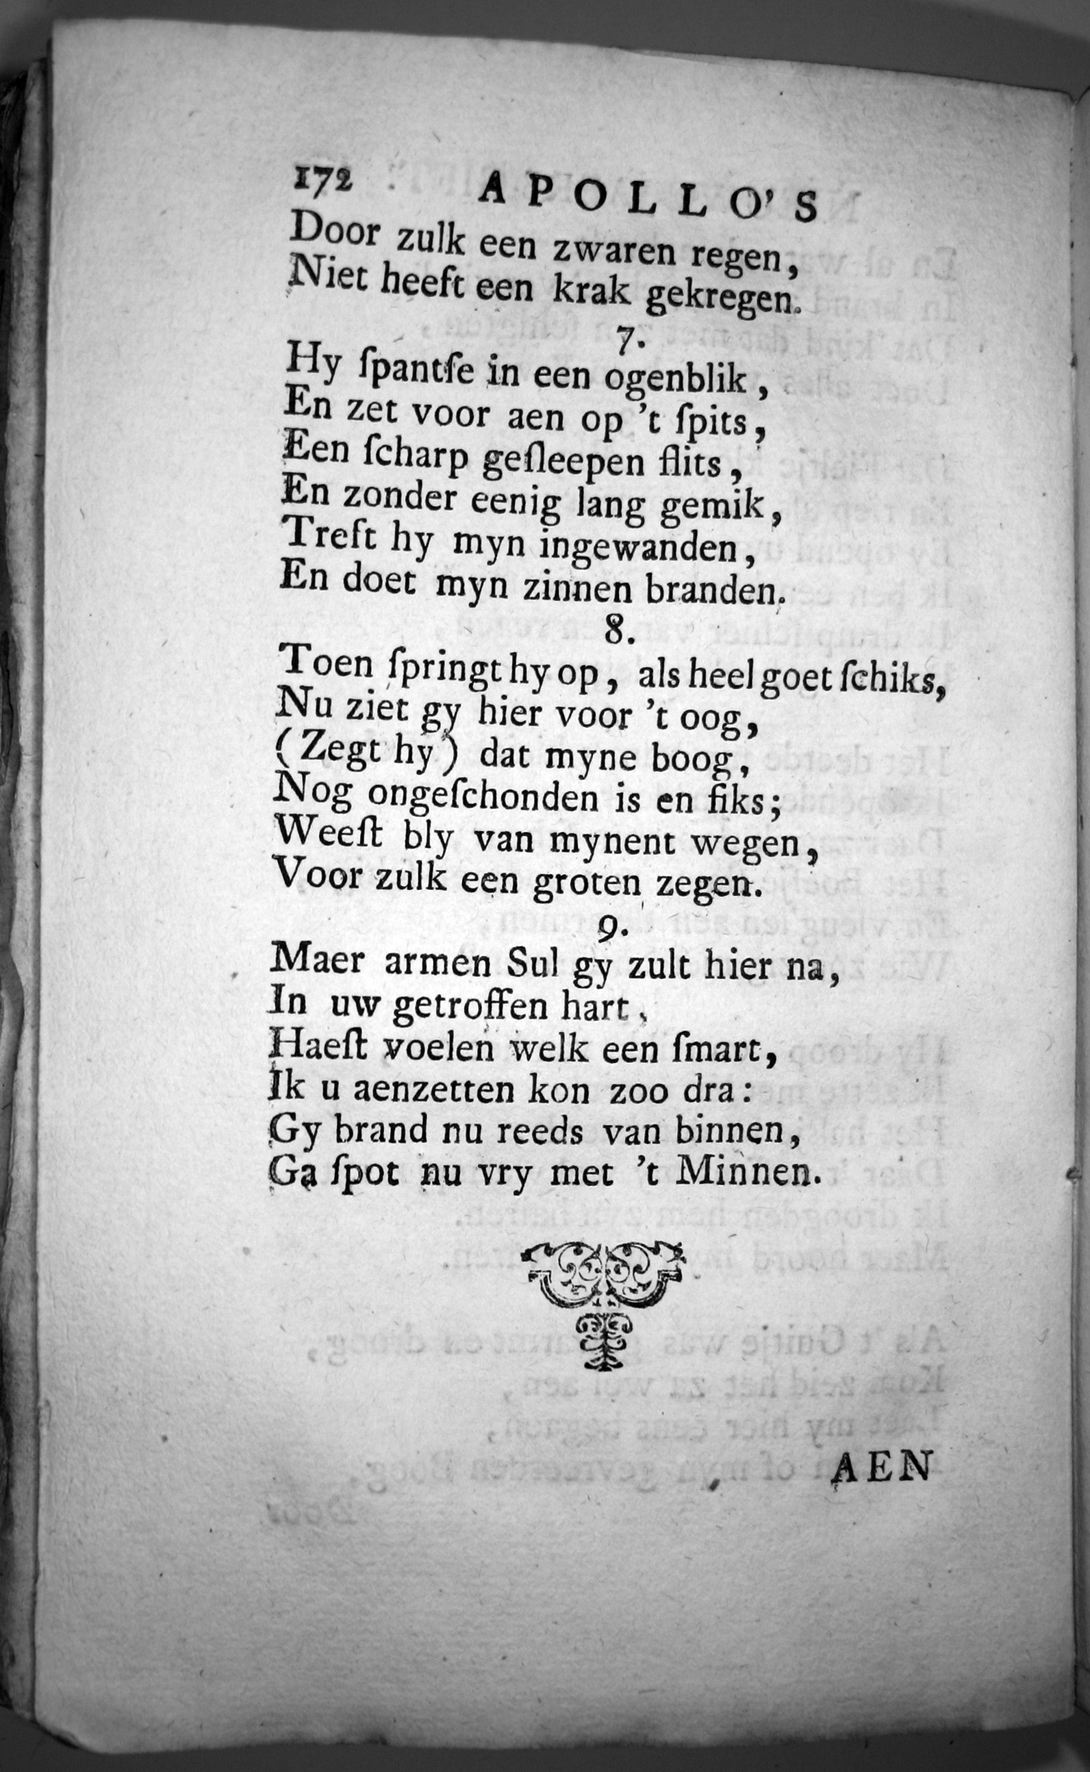 172 APOLLO'S
Door zulk een zwaren regen,
Niet heeft een krak gekregen.
7.
Hy ſpantſe in een ogenblik,
En zet voor aen op 't ſpits,
Een ſcharp geſleepen flits,
En zonder eenig lang gemik,
Treft hy myn ingewanden,
En doet myn zinnen branden.
8.
Toen ſpringt hy op, als heel goet ſchiks,
Nu ziet gy hier voor 't oog,
(Zegt hy) dat myne boog,
Nog ongeſchonden is en fiks;
Weeſt bly van mynent wegen,
Voor zulk een groten zegen.
9.
Maer armen Sul gy zult hier na,
In uw getroffen hart,
Haeſt voelen welk een ſmart,
Ik u aenzetten kon zoo dra:
Gy brand nu reeds van binnen,
Ga ſpot nu vry met 't Minnen.
AEN